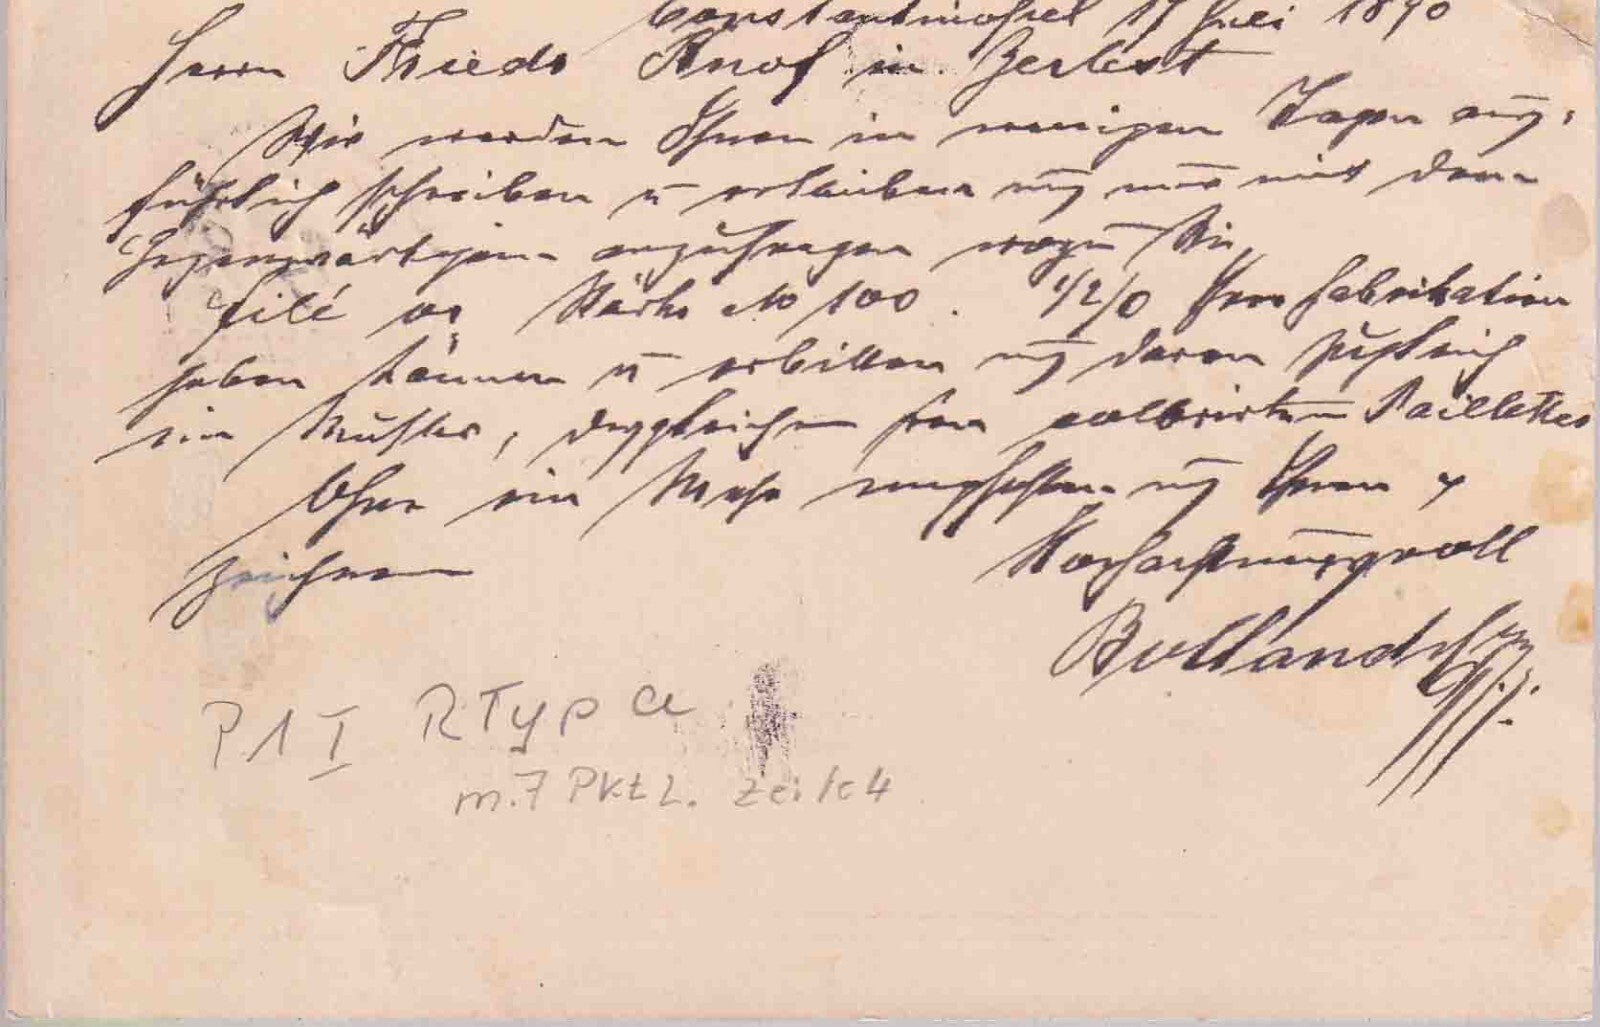 Constantinopel 17 Juli 1890
Herrn Friedr Knof in Zerbst
Wir werden Ihnen in wenigen Tagen aus-
führlich schreiben u erlauben uns nur mit dem
Gegenwärtigen anzufragen wozu Sie
filé or Stärke No 100. 1/2/0 Ihrer Fabrikation
geben können u erbitten uns davon zugleich
ein Muster, desgleichen von colorirten Paillettes
Ohne ein Mehr empfehlen uns Ihnen &
zeichnen
Hochachtungsvoll
P 1 I R Typ a
m. 7 Pkt L. Zeile 4